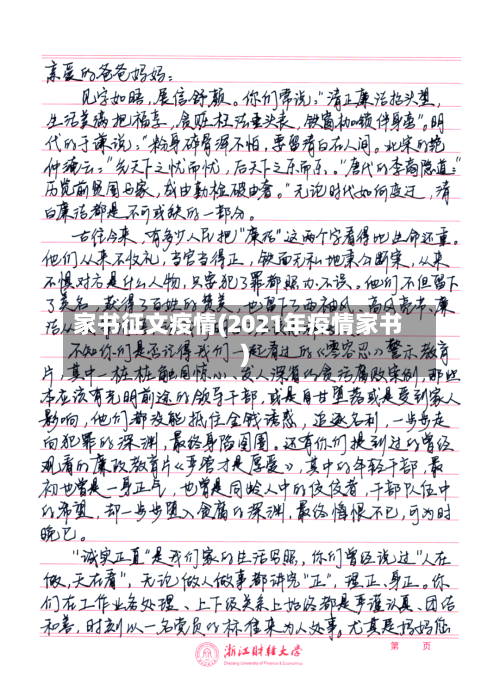 亲爱的爸爸妈妈：
见字如晤，展信舒颜。你们常说："清正廉洁抬头望，
生活美满把福享，贪赃枉法垂头丧，铁窗枷锁伴身旁"。明
代的于谦说："粉身碎骨浑不怕，要留清白在人间。北宋的范
仲淹云："先天下之忧而忧，后天下之乐而乐。"唐代的李商隐道："
历览前贤国与家，成由勤俭破由奢。"无论时代如何变迁，清
白廉洁都是不可或缺的一部分。
古往今来，有多少人民把"廉洁"这两个字看得比生命还重。
他们从来不收礼，当官当得正，铁面无私地秉公断案，从来
不惧对方是什么人物，只要犯了罪都照办不误。他们不但留下
了美名，获得了百姓的赞美，也留下了两袖清风、高风亮节、廉
洁
家书征文疫情(2021年疫情家书
)
不知你们是否记得我们一起看过的《零容忍》警示教育
片，其中一桩桩触目惊心、发人深省的贪污腐败案例，那些
本应该有光明前途的领导干部，或是自甘堕落或是受到家人
影响，他们都没能抵住金钱诱惑，追逐名利，一步步走
向犯罪的深渊，最终身陷囹圄。还有你们提到过的曾经
观看的廉政教育片《严管才是厚爱》，其中的年轻干部，最
初也曾是一身正气，也曾是同龄人中的佼佼者，干部队伍中
的希望，却一步步堕入贪腐的深渊，最终悔恨不已，可为时
晚已。
"诚实正直"是我们家的生活写照，你们曾经说过"人在
做，天在看"，无论做人做事都讲究"正"，理正、身正。你
们在工作业务处理、上下级关系上始终都是严谨认真、团结
和善，时刻以一名党员的标准来为人处事。尤其是妈妈您
浙江财经大学
Zhejiang University of Finance & Economics
第 页